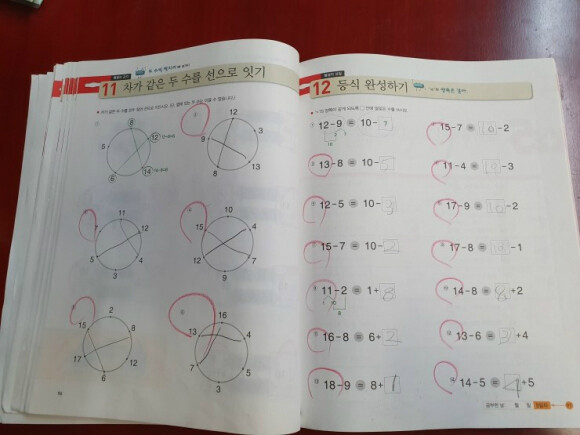 11 차가 같은 두 수를 선으로 잇기
8
12
5
14
6
12
9
3
13
8
11
12
5
4
3
10
15
4
12
7
9
2
15
8
17
12
6
16
13
4
7
5
12 등식 완성하기
12-9 = 10-7
15-7 = 10-2
13-8 = 10-5
11-4 = 10-3
12-5 = 10-3
17-9 = 10-2
15-7 = 10-2
17-8 = 10-1
11-2 = 1+8
14-8 = 8+2
16-8 = 6+2
13-6 = +4
18-9 = 8+1
14-5 = 4+5